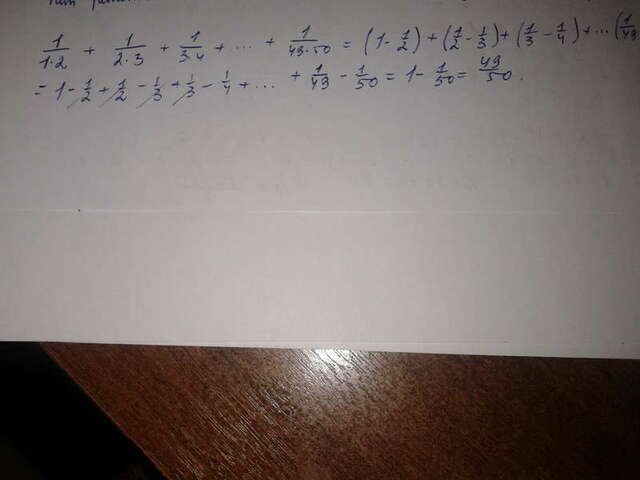 1/1·2 + 1/2·3 + 1/3·4 + ... + 1/49·50 = (1 - 1/2) + (1/2 - 1/3) + (1/3 - 1/4) + ... (1/49
= 1 - 1/2 + 1/2 - 1/3 + 1/3 - 1/4 + ... + 1/49 - 1/50 = 1 - 1/50 = 49/50.